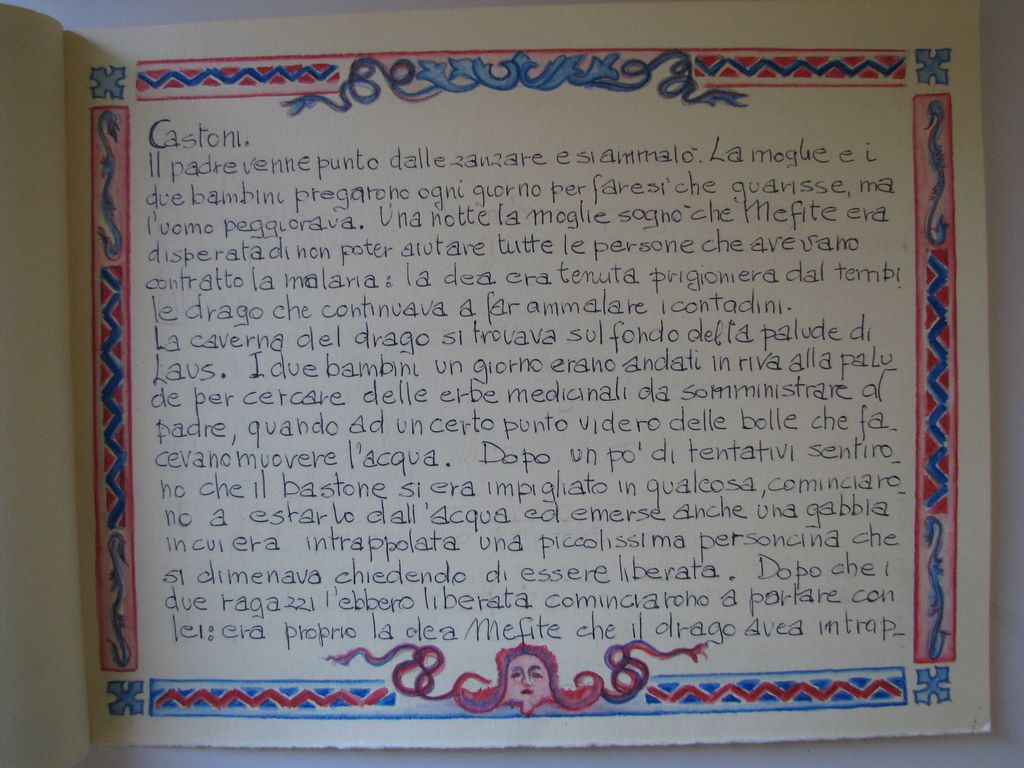 Castoni.
Il padre venne punto dalle zanzare e si ammalò. La moglie e i
due bambini pregarono ogni giorno per far esì che guarisse, ma
l'uomo peggiorava. Una notte la moglie sognò che Mefite era
disperata di non poter aiutare tutte le persone che avevano
contratto la malaria: la dea era tenuta prigioniera dal terribi
le drago che continuava a far ammalare i contadini.
La caverna del drago si trovava sul fondo della palude di
Laus. I due bambini un giorno erano andati in riva alla palu
de per cercare delle erbe medicinali da somministrare al
padre, quando ad un certo punto videro delle bolle che fa_
cevano muovere l'acqua. Dopo un po' di tentativi sentiro_
no che il bastone si era impigliato in qualcosa, cominciaro_
no a estrarlo dall'acqua ed emerse anche una gabbia
in cui era intrappolata una piccolissima personcina che
si dimenava chiedendo di essere liberata. Dopo che i
due ragazzi l'ebbero liberata cominciarono a parlare con
lei: era proprio la dea Mefite che il drago avea intrap_